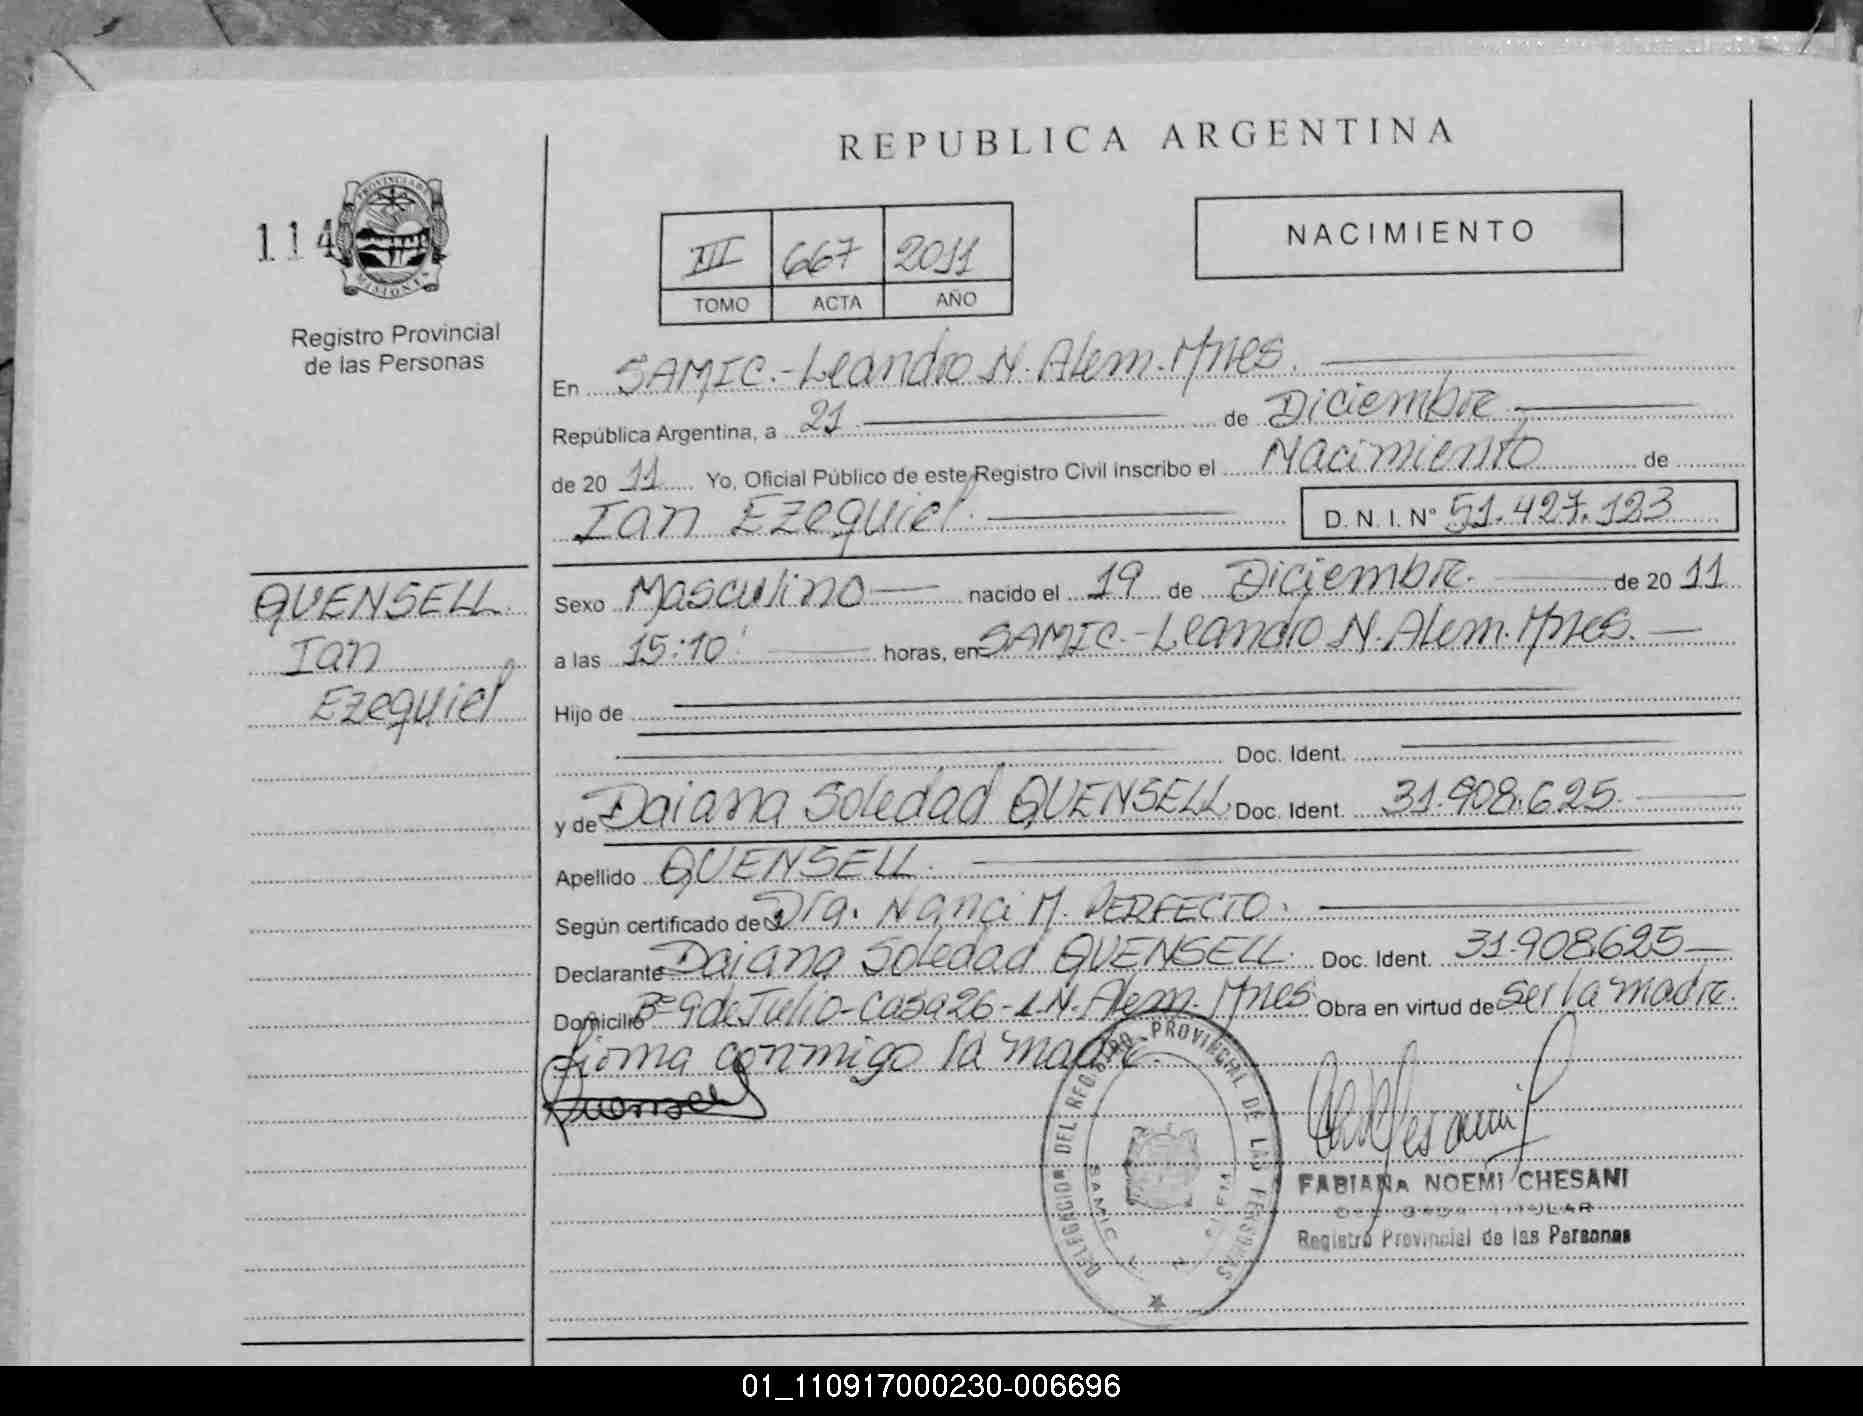 REPUBLICA ARGENTINA
114
PROVINCIA DE
MISIONES
Registro Provincial
de las Personas
III 667 2011
TOMO ACTA AÑO
NACIMIENTO
En SAMIC.-Leandro N. Alem. Mnes.
República Argentina, a 21 de Diciembre
de 20 11 Yo, Oficial Público de este Registro Civil inscribo el Nacimiento de
Ian Ezequiel. D. N. I. N° 51.427.123
QUENSELL
Ian
Ezequiel
Sexo Masculino nacido el 19 de Diciembre. de 20 11
a las 15:10' horas, en SAMIC.-Leandro N. Alem. Mnes.
Hijo de
Doc. Ident.
y de Daiana Soledad QUENSELL Doc. Ident. 31.908.625.
Apellido QUENSELL.
Según certificado de Dra. Nanci M. PERFECTO.
Declarante Daiana Soledad QUENSELL. Doc. Ident. 31.908625
Domicilio Bº 9 de Julio-Casa 26-L.N. Alem. Mnes Obra en virtud de ser la madre.
firma conmigo la madre.
DELEGACION DEL REGISTRO PROVINCIAL DE LAS PERSONAS
SAMIC
FABIANA NOEMI CHESANI
DELEGADA TITULAR
Registro Provincial de las Personas
01_110917000230-006696